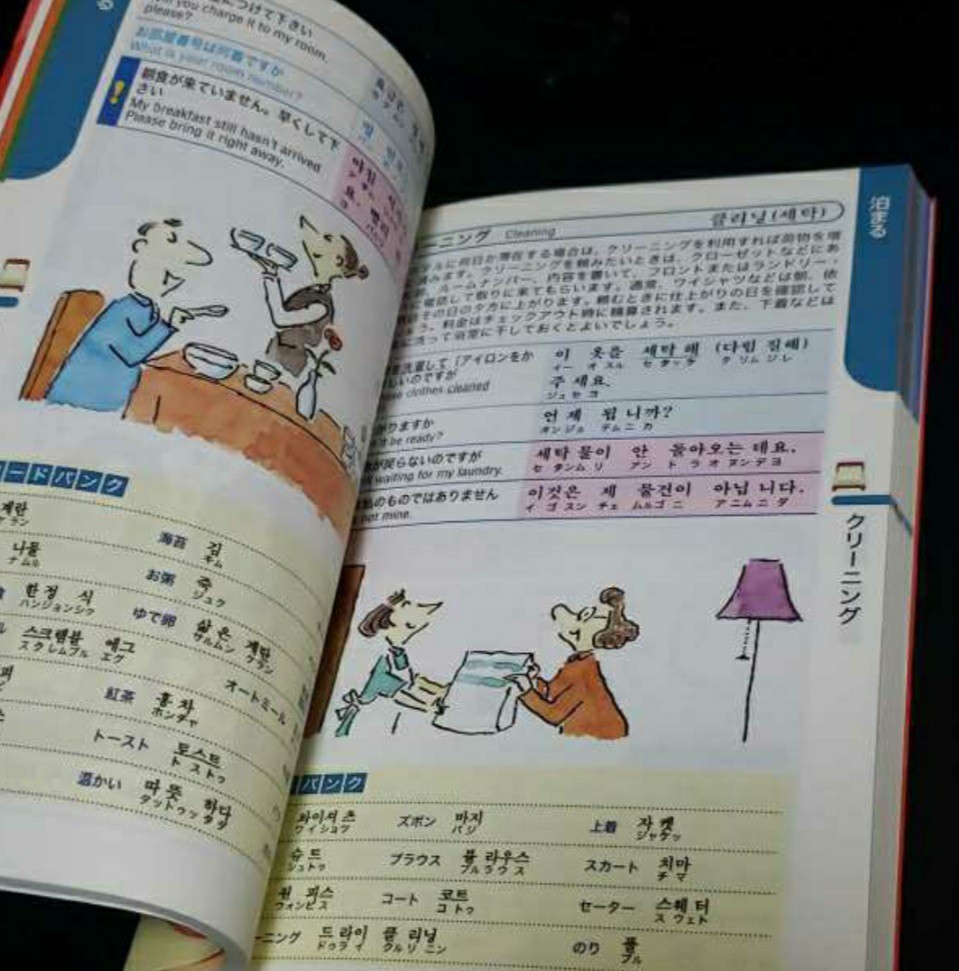 につけて下さい
you charge it to my room.
please?
お部屋番号は何番ですか
What is your room number?
朝食が来ていません。早くして下
さい
My breakfast still hasn't arrived
Please bring it right away.
아침
ードバンク
계란
海苔 김
キム
나물
ナムル
お粥 죽
ジュク
한정 식
ハンジョンシク
ゆで卵 삶은 계란
サルムン ケラン
스크램블 에그
スクレムブル エグ
オートミール
紅茶 홍차
ホンチャ
トースト 토스트
トストゥ
温かい 따뜻 하다
タットゥッ
泊まる
ーニング Cleaning 클리닝(세탁)
テルに何日か滞在する場合は、クリーニングを利用すれば荷物を増
みます。クリーニングを頼みたいときは、クローゼットなどにあ
ルームナンバー、内容を書いて、フロントまたはランドリー・
電話して取りに来てもらいます。通常、ワイシャツなどは朝、依
その日の夕方に上がります。頼むときに仕上がりの日を確認して
う。料金はチェックアウト時に精算されます。また、下着などは
洗って浴室に干しておくとよいでしょう。
洗濯して「アイロンをか
しいのですが
clothes cleaned
이 옷을 세탁 해 (다림 질해)
イー オスル セタッケ タリムジレ
주 세요.
ジュセヨ
がりますか
it be ready?
언제 됩 니까?
オンジェ デムニカ
が戻らないのですが
waiting for my laundry.
세탁 물이 안 돌아오는 데요.
セタンムリ アン トラオヌンデヨ
私のものではありません
not mine.
이것은 제 물건이 아닙 니다.
イゴスン チェ ムルゴニ アニムニダ
クリーニング
バンク
와이셔츠
ワイショツ
ズボン 바지
バジ
上着 자켓
ジャケッ
슈트
シュトゥ
ブラウス 블라우스
ブルラウス
スカート 치마
チマ
원 피스
ウォンピス
コート 코트
コトゥ
セーター 스웨터
スウェト
ーニング 드라이 클 리닝
ドゥライ クルリニン
のり 풀
プル